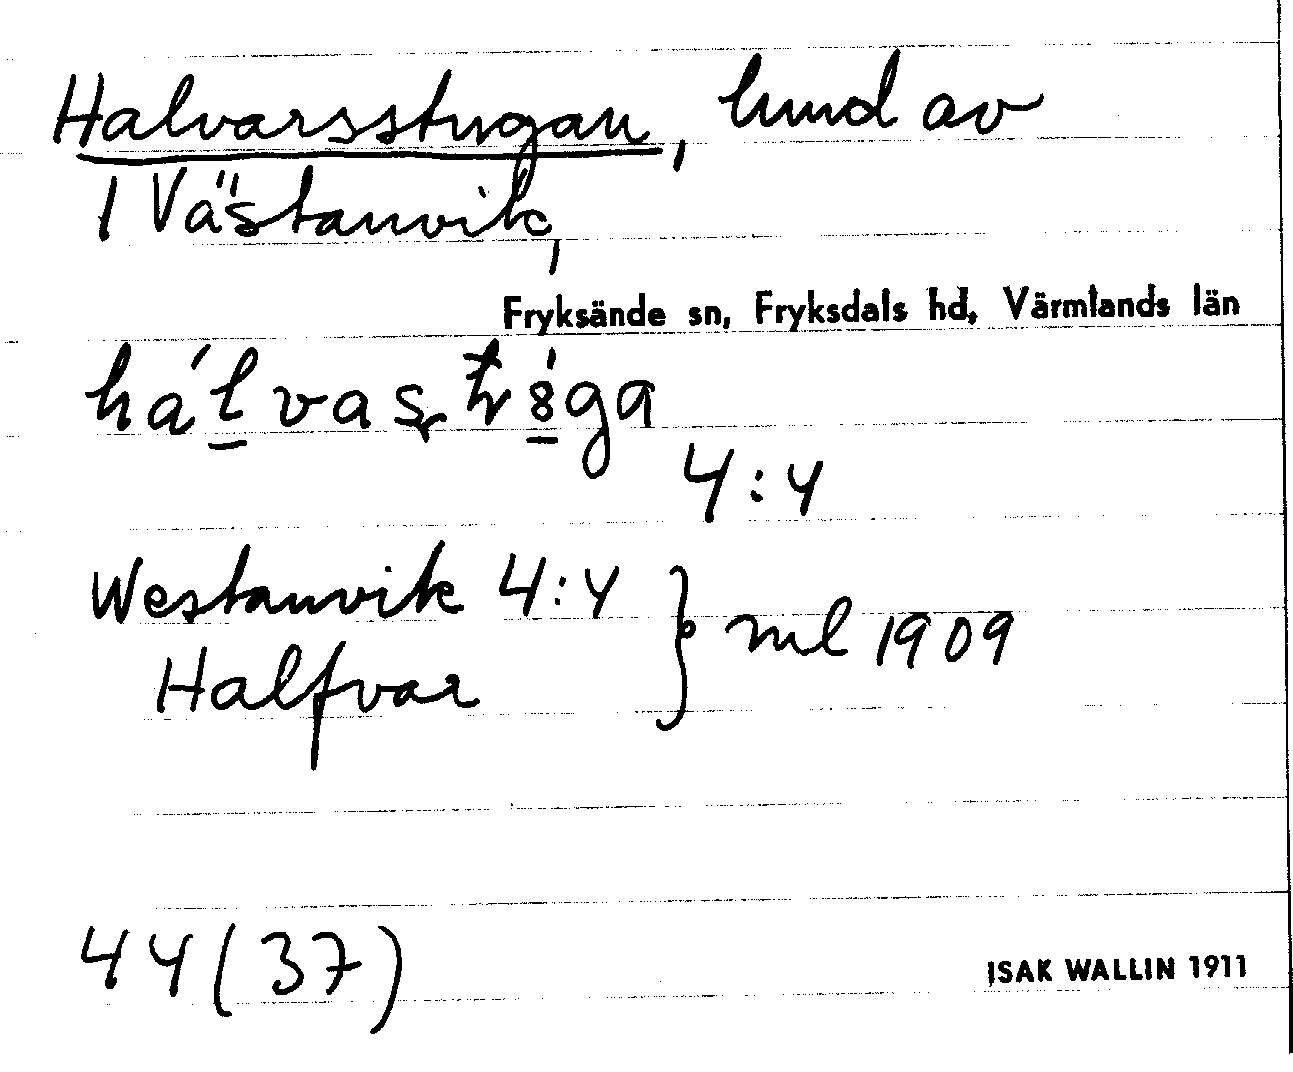 Halvarsstugan, hmd av
1 Västanvik,
Fryksände sn, Fryksdals hd, Värmlands län
4:4
Westanvik 4:4 } ml 1909
Halfvar
44 (37)
ISAK WALLIN 1911